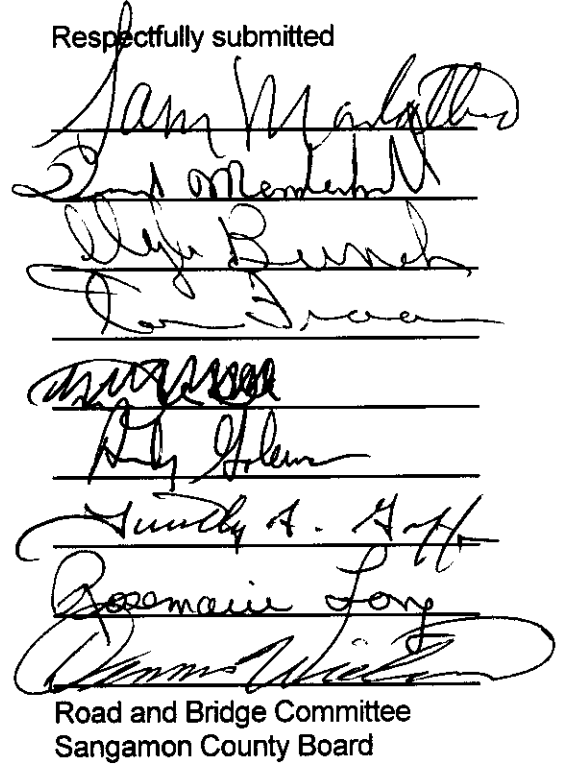 Respectfully submitted
Sam
David Mendenhall
Bunch
Tom
Andy Goleman
Timothy A. Goff
Rosemarie Long
Dennis
Road and Bridge Committee
Sangamon County Board